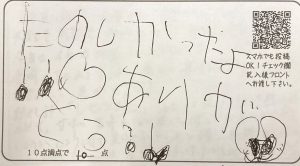 たのしかったよ
!! ありが
とう?!
10点満点で 10 点
スマホでも投稿
OK！チェック欄
記入後フロント
へお渡し下さい。